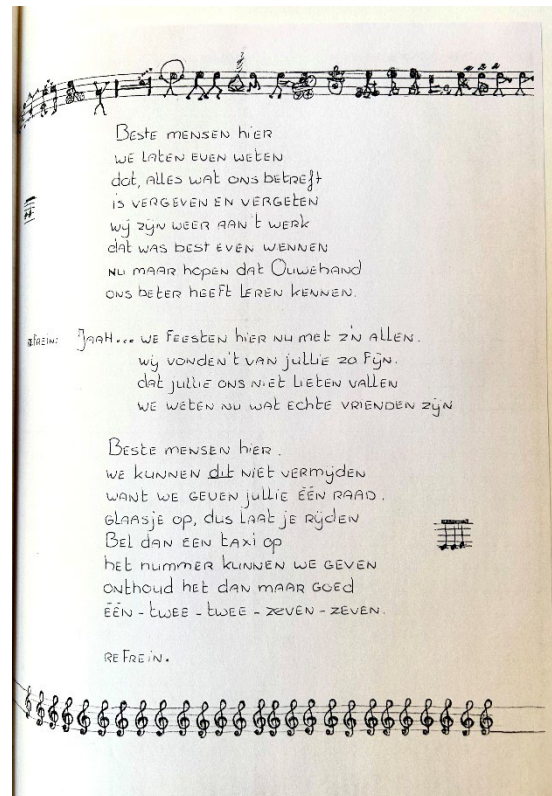 Beste mensen hier
we laten even weten
dat, alles wat ons betreft
is vergeven en vergeten
wij zijn weer aan 't werk
dat was best even wennen
nu maar hopen dat Ouwehand
ons beter heeft leren kennen.
refrein: Jaah... we feesten hier nu met z'n allen.
wij vonden 't van jullie zo fijn.
dat jullie ons niet lieten vallen
we weten nu wat echte vrienden zijn
Beste mensen hier.
we kunnen dit niet vermijden
want we geven jullie één raad.
glaasje op, dus laat je rijden
Bel dan een taxi op
het nummer kunnen we geven
onthoud het dan maar goed
één - twee - twee - zeven - zeven.
refrein.